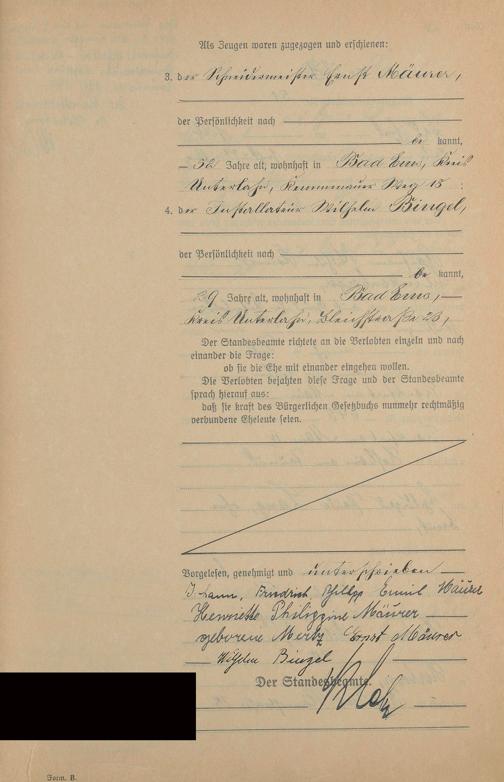 Als Zeugen waren zugezogen und erschienen:
3. der Schneidermeister Ernst Mäurer,
der Persönlichkeit nach
be kannt,
32 Jahre alt, wohnhaft in Bad Ems, Kreis
Unterlahn, Kemmenauer Weg 15 :
4. der Installateur Wilhelm Bingel,
der Persönlichkeit nach
be kannt,
39 Jahre alt, wohnhaft in Bad Ems,
Kreis Unterlahn, Bleichstraße 23,
Der Standesbeamte richtete an die Verlobten einzeln und nach
einander die Frage:
ob sie die Ehe mit einander eingehen wollen.
Die Verlobten bejahten diese Frage und der Standesbeamte
sprach hierauf aus:
daß sie kraft des Bürgerlichen Gesetzbuchs nunmehr rechtmäßig
verbundene Eheleute seien.
Vorgelesen, genehmigt und unterschrieben
Friedrich Philipp Emil Mäurer
Henriette Philippine Mäurer
geborene Merbz Ernst Mäurer
Wilhelm Bingel
Der Standesbeamte.
Form. B.